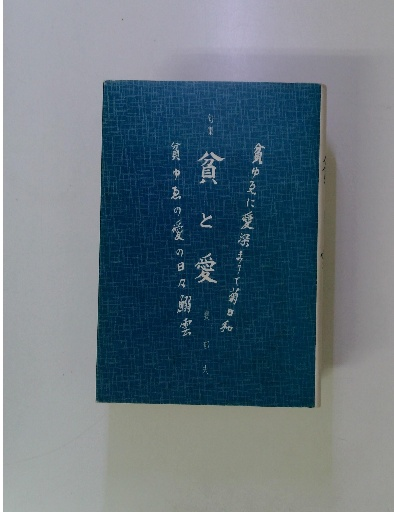 貧ゆゑに愛深まりて菊日和
句集
貧と愛
貧ゆゑの愛の日々鰯雲